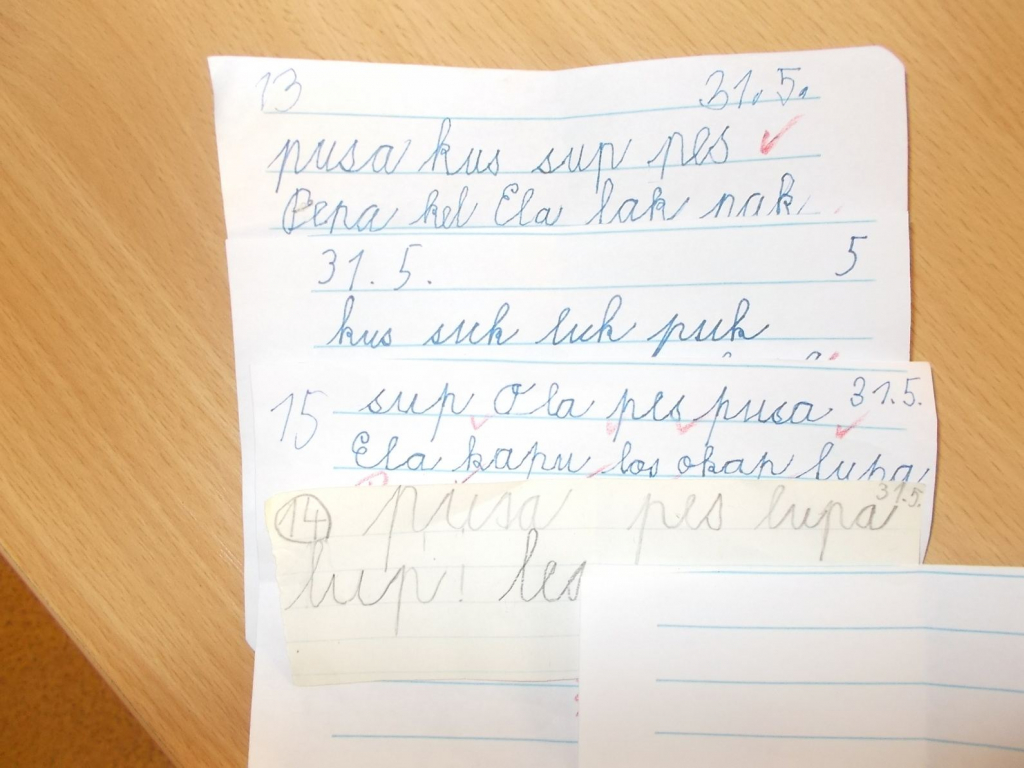 13 31.5.
pusa kus sup pes
Pepa kel Ela lak nak
31.5. 5
kus suk luk puk
15 sup Ola pes pusa 31.5.
Ela kapu los okap lupa
31.5.
14 pusa pes lupa
lup! les